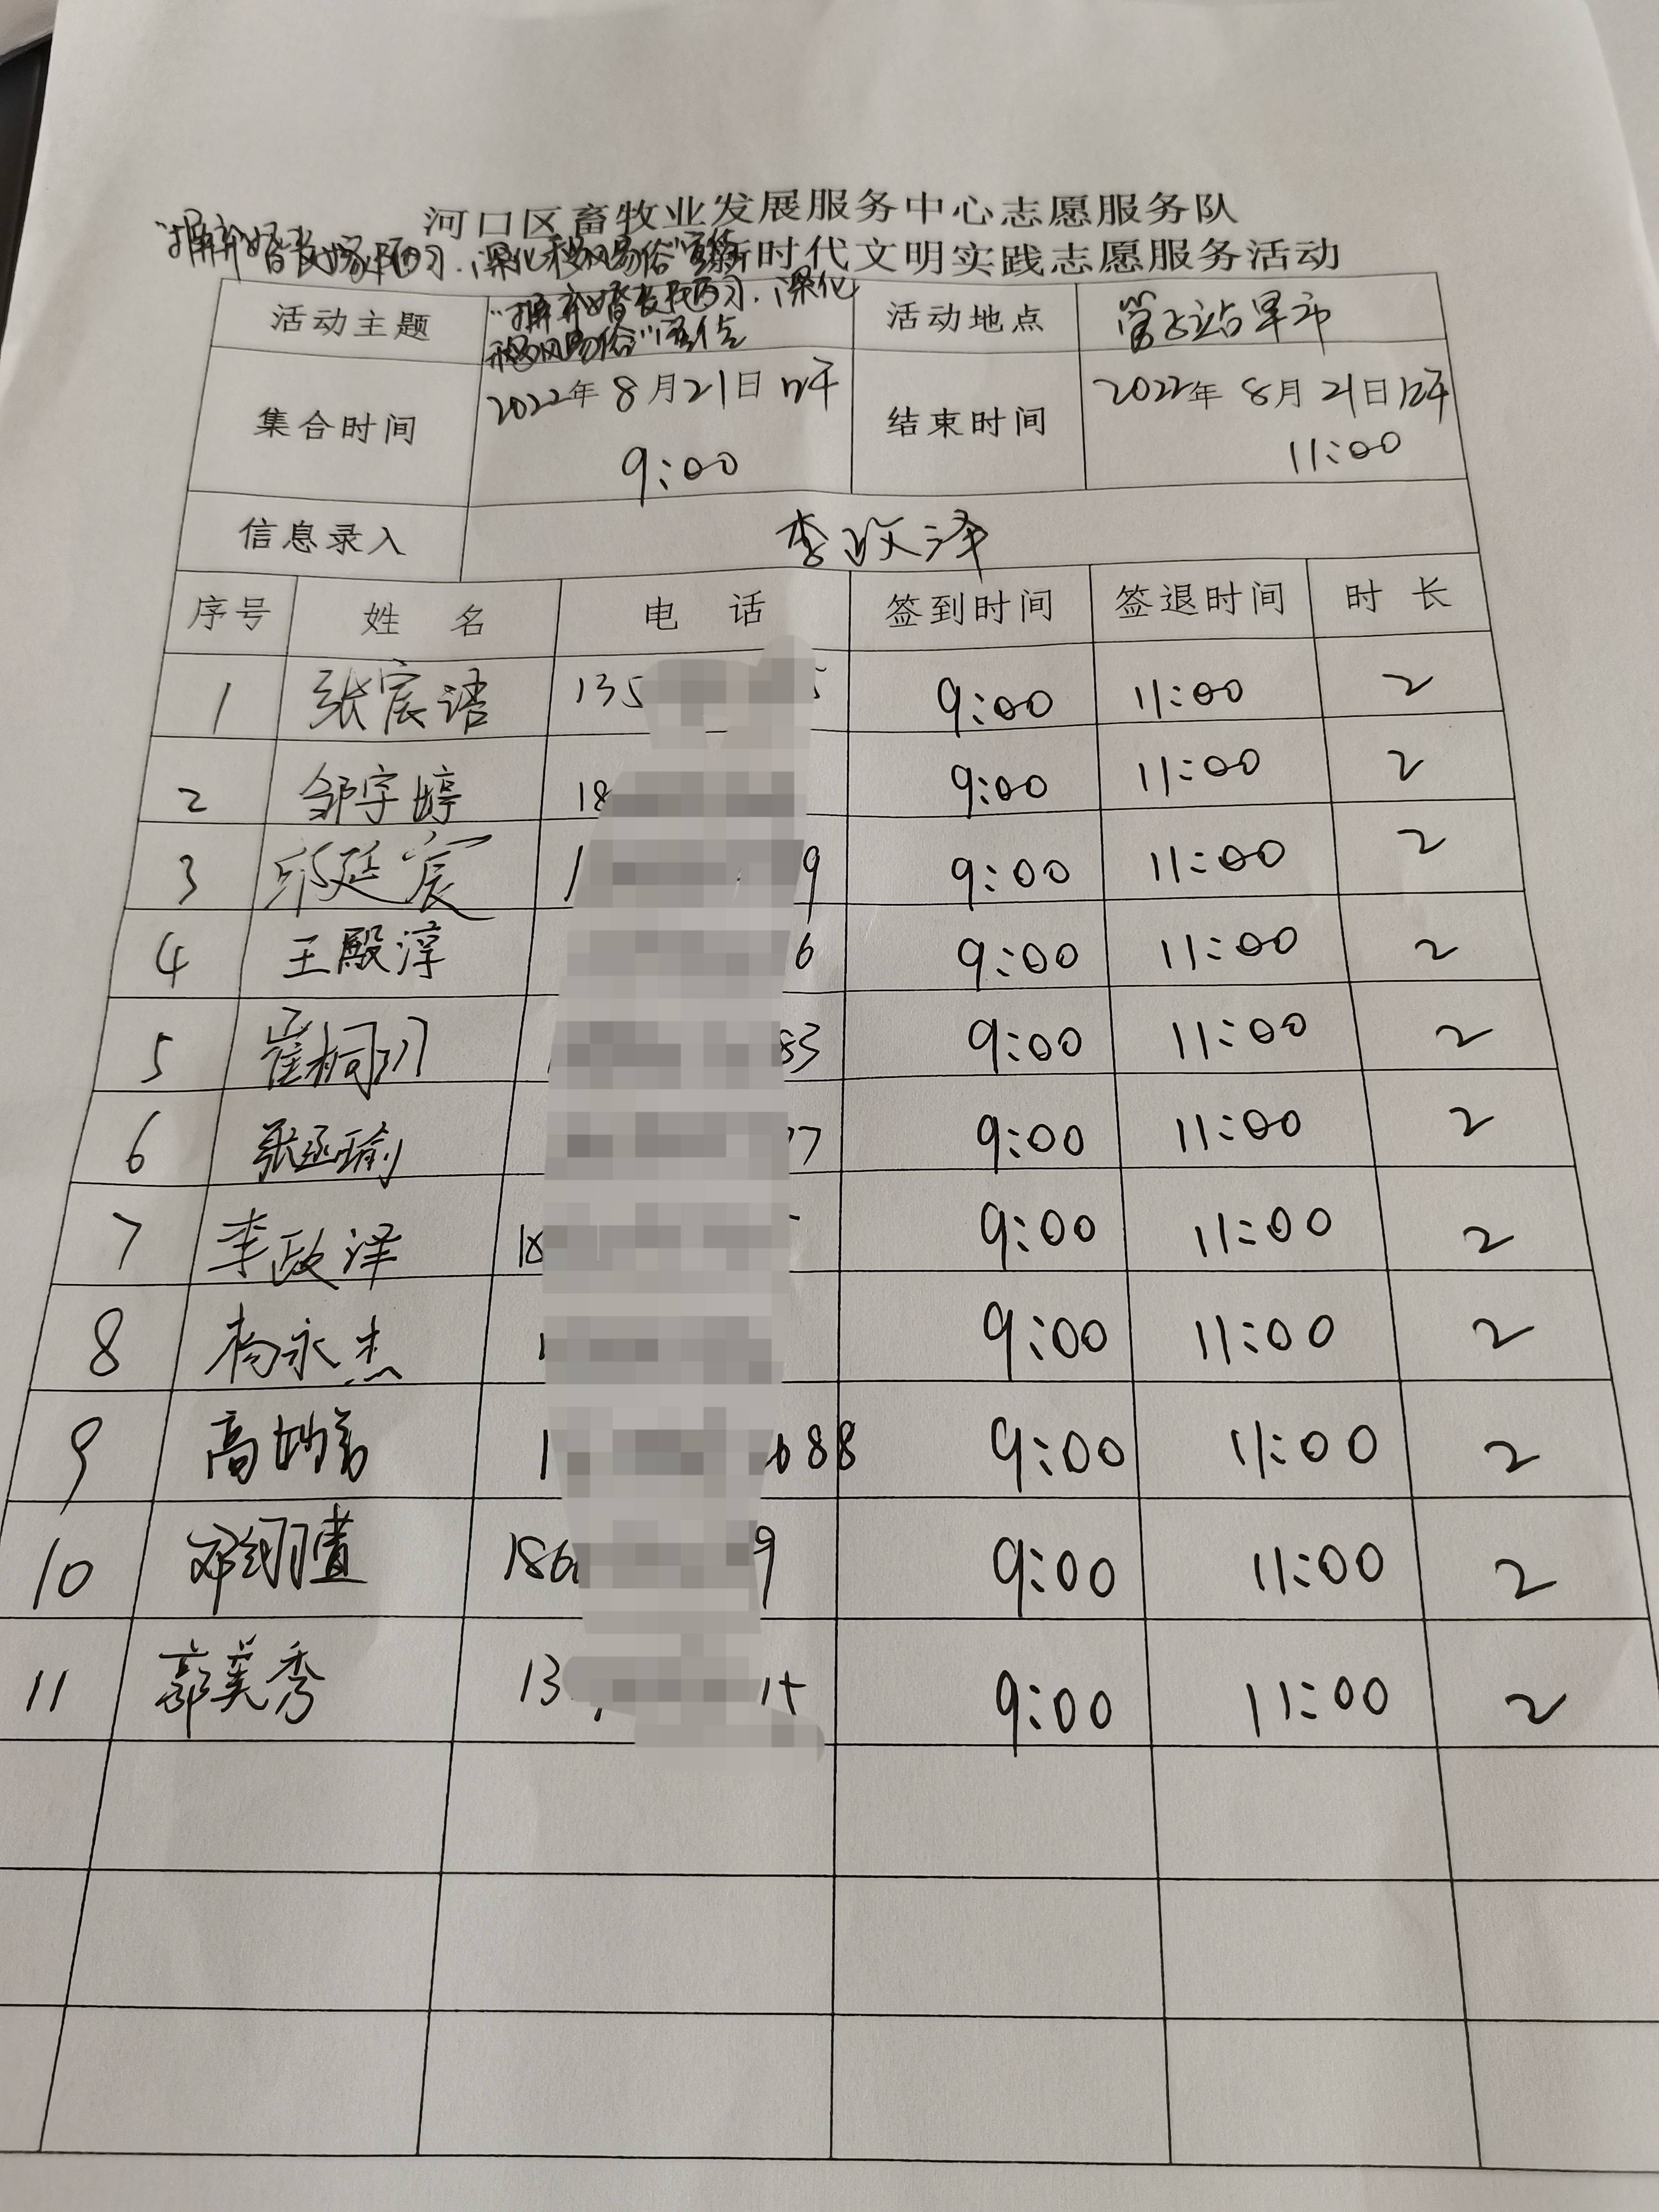 河口区畜牧业发展服务中心志愿服务队
"摒弃婚丧陋习.深化移风易俗"宣传新时代文明实践志愿服务活动
活动主题 "摒弃婚丧陋习.深化移风易俗"宣传 活动地点 早市
集合时间 2022年8月21日上午 9:00 结束时间 2022年8月21日上午 11:00
信息录入 李政泽
序号 姓 名 电 话 签到时间 签退时间 时 长
1 张宸语 135 5 9:00 11:00 2
2 邹宇婷 18 9:00 11:00 2
3 邱延宸 1 9 9:00 11:00 2
4 王殿淳 6 9:00 11:00 2
5 崔桐 83 9:00 11:00 2
6 张丞瑜 77 9:00 11:00 2
7 李政泽 18 9:00 11:00 2
8 杨永杰 1 9:00 11:00 2
9 高 1 688 9:00 11:00 2
10 邓翔 186 9 9:00 11:00 2
11 郭美秀 13 9:00 11:00 2